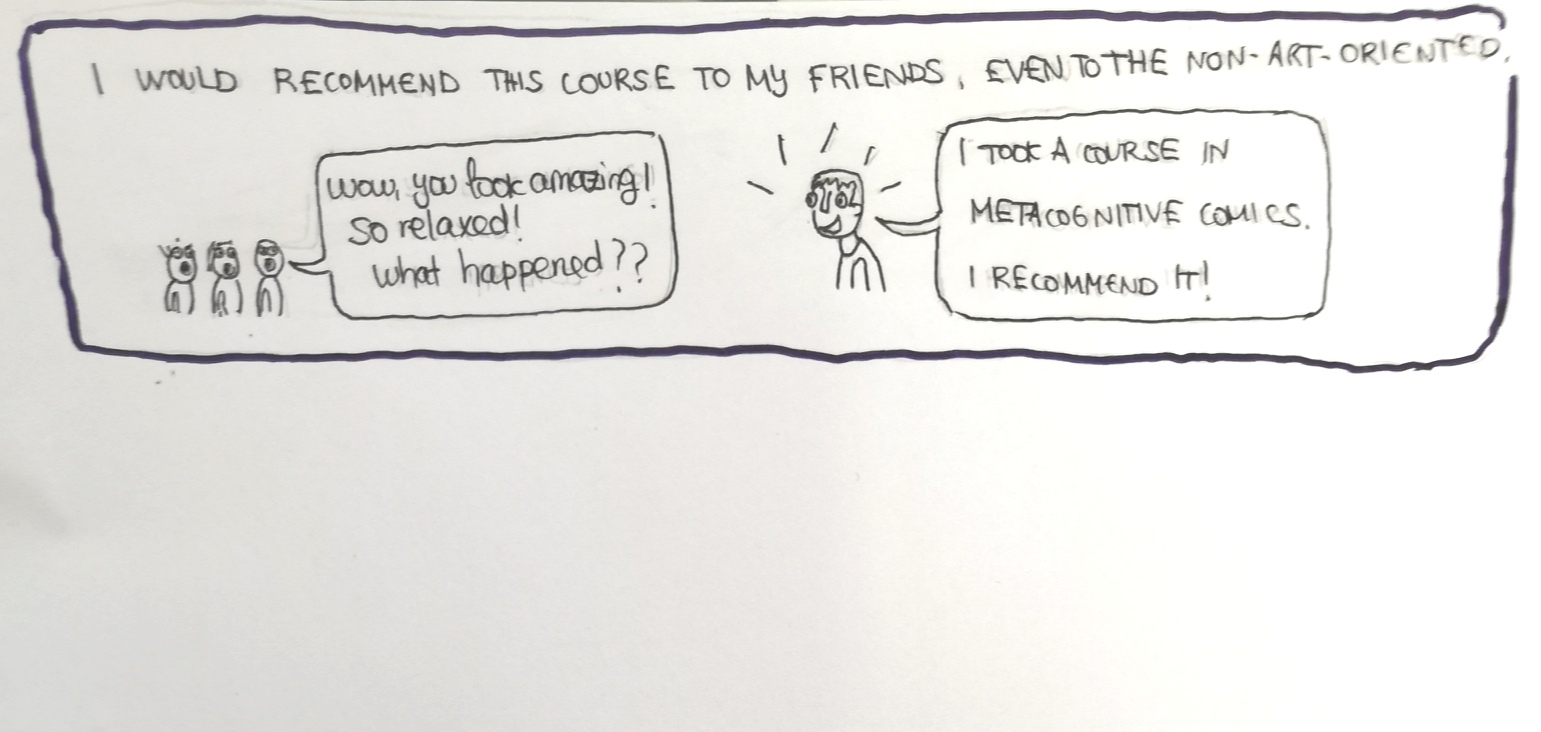 I WOULD RECOMMEND THIS COURSE TO MY FRIENDS, EVEN TO THE NON-ART-ORIENTED.
wow, you look amazing!
so relaxed!
what happened??
I TOOK A COURSE IN
METACOGNITIVE COMICS.
I RECOMMEND IT!